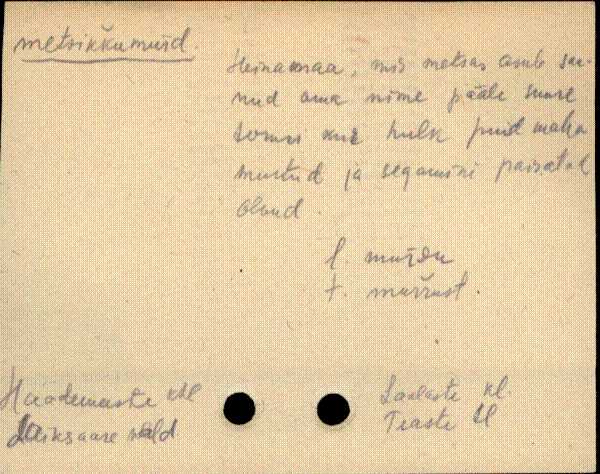 metsikkumurd.
Heinamaa, mis metsas asub saa-
nud oma nime pääle suure
tormi kus hulk puid maha
murtud ja segamini paisatud
olnud.
l. murdu
t. murrust.
Häädemeeste khl
Laiksaare vald
Saalaste kl.
Teaste tl